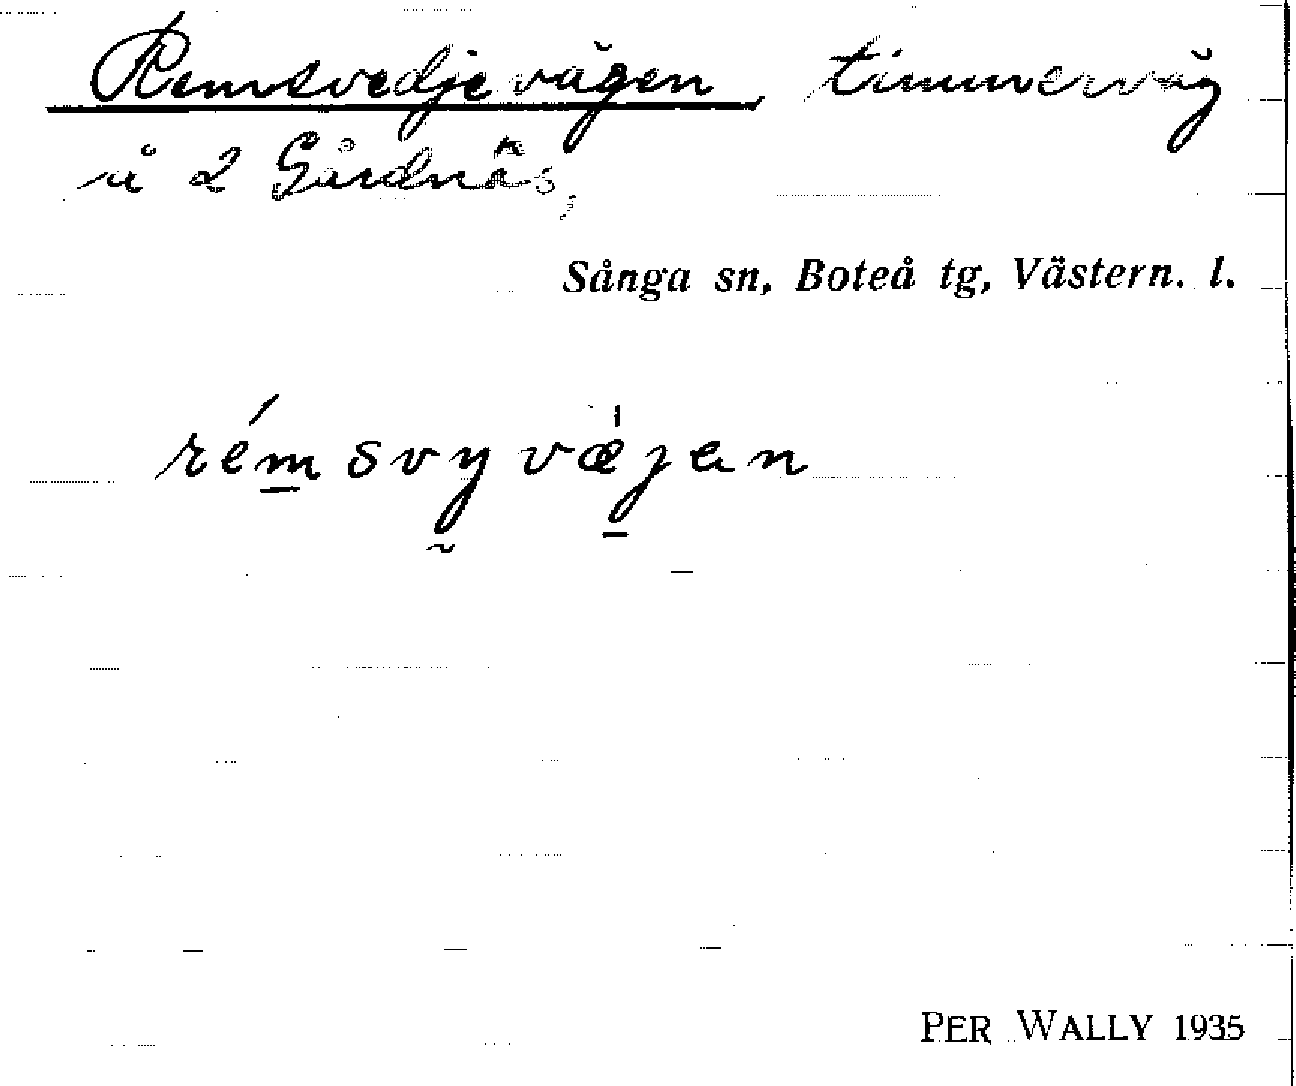 Remsvedjevägen, timmerväg
å 2 Gårdnäs,
Sånga sn, Boteå tg, Västern. l.
rémsvyvæ̀jen
PER WALLY 1935